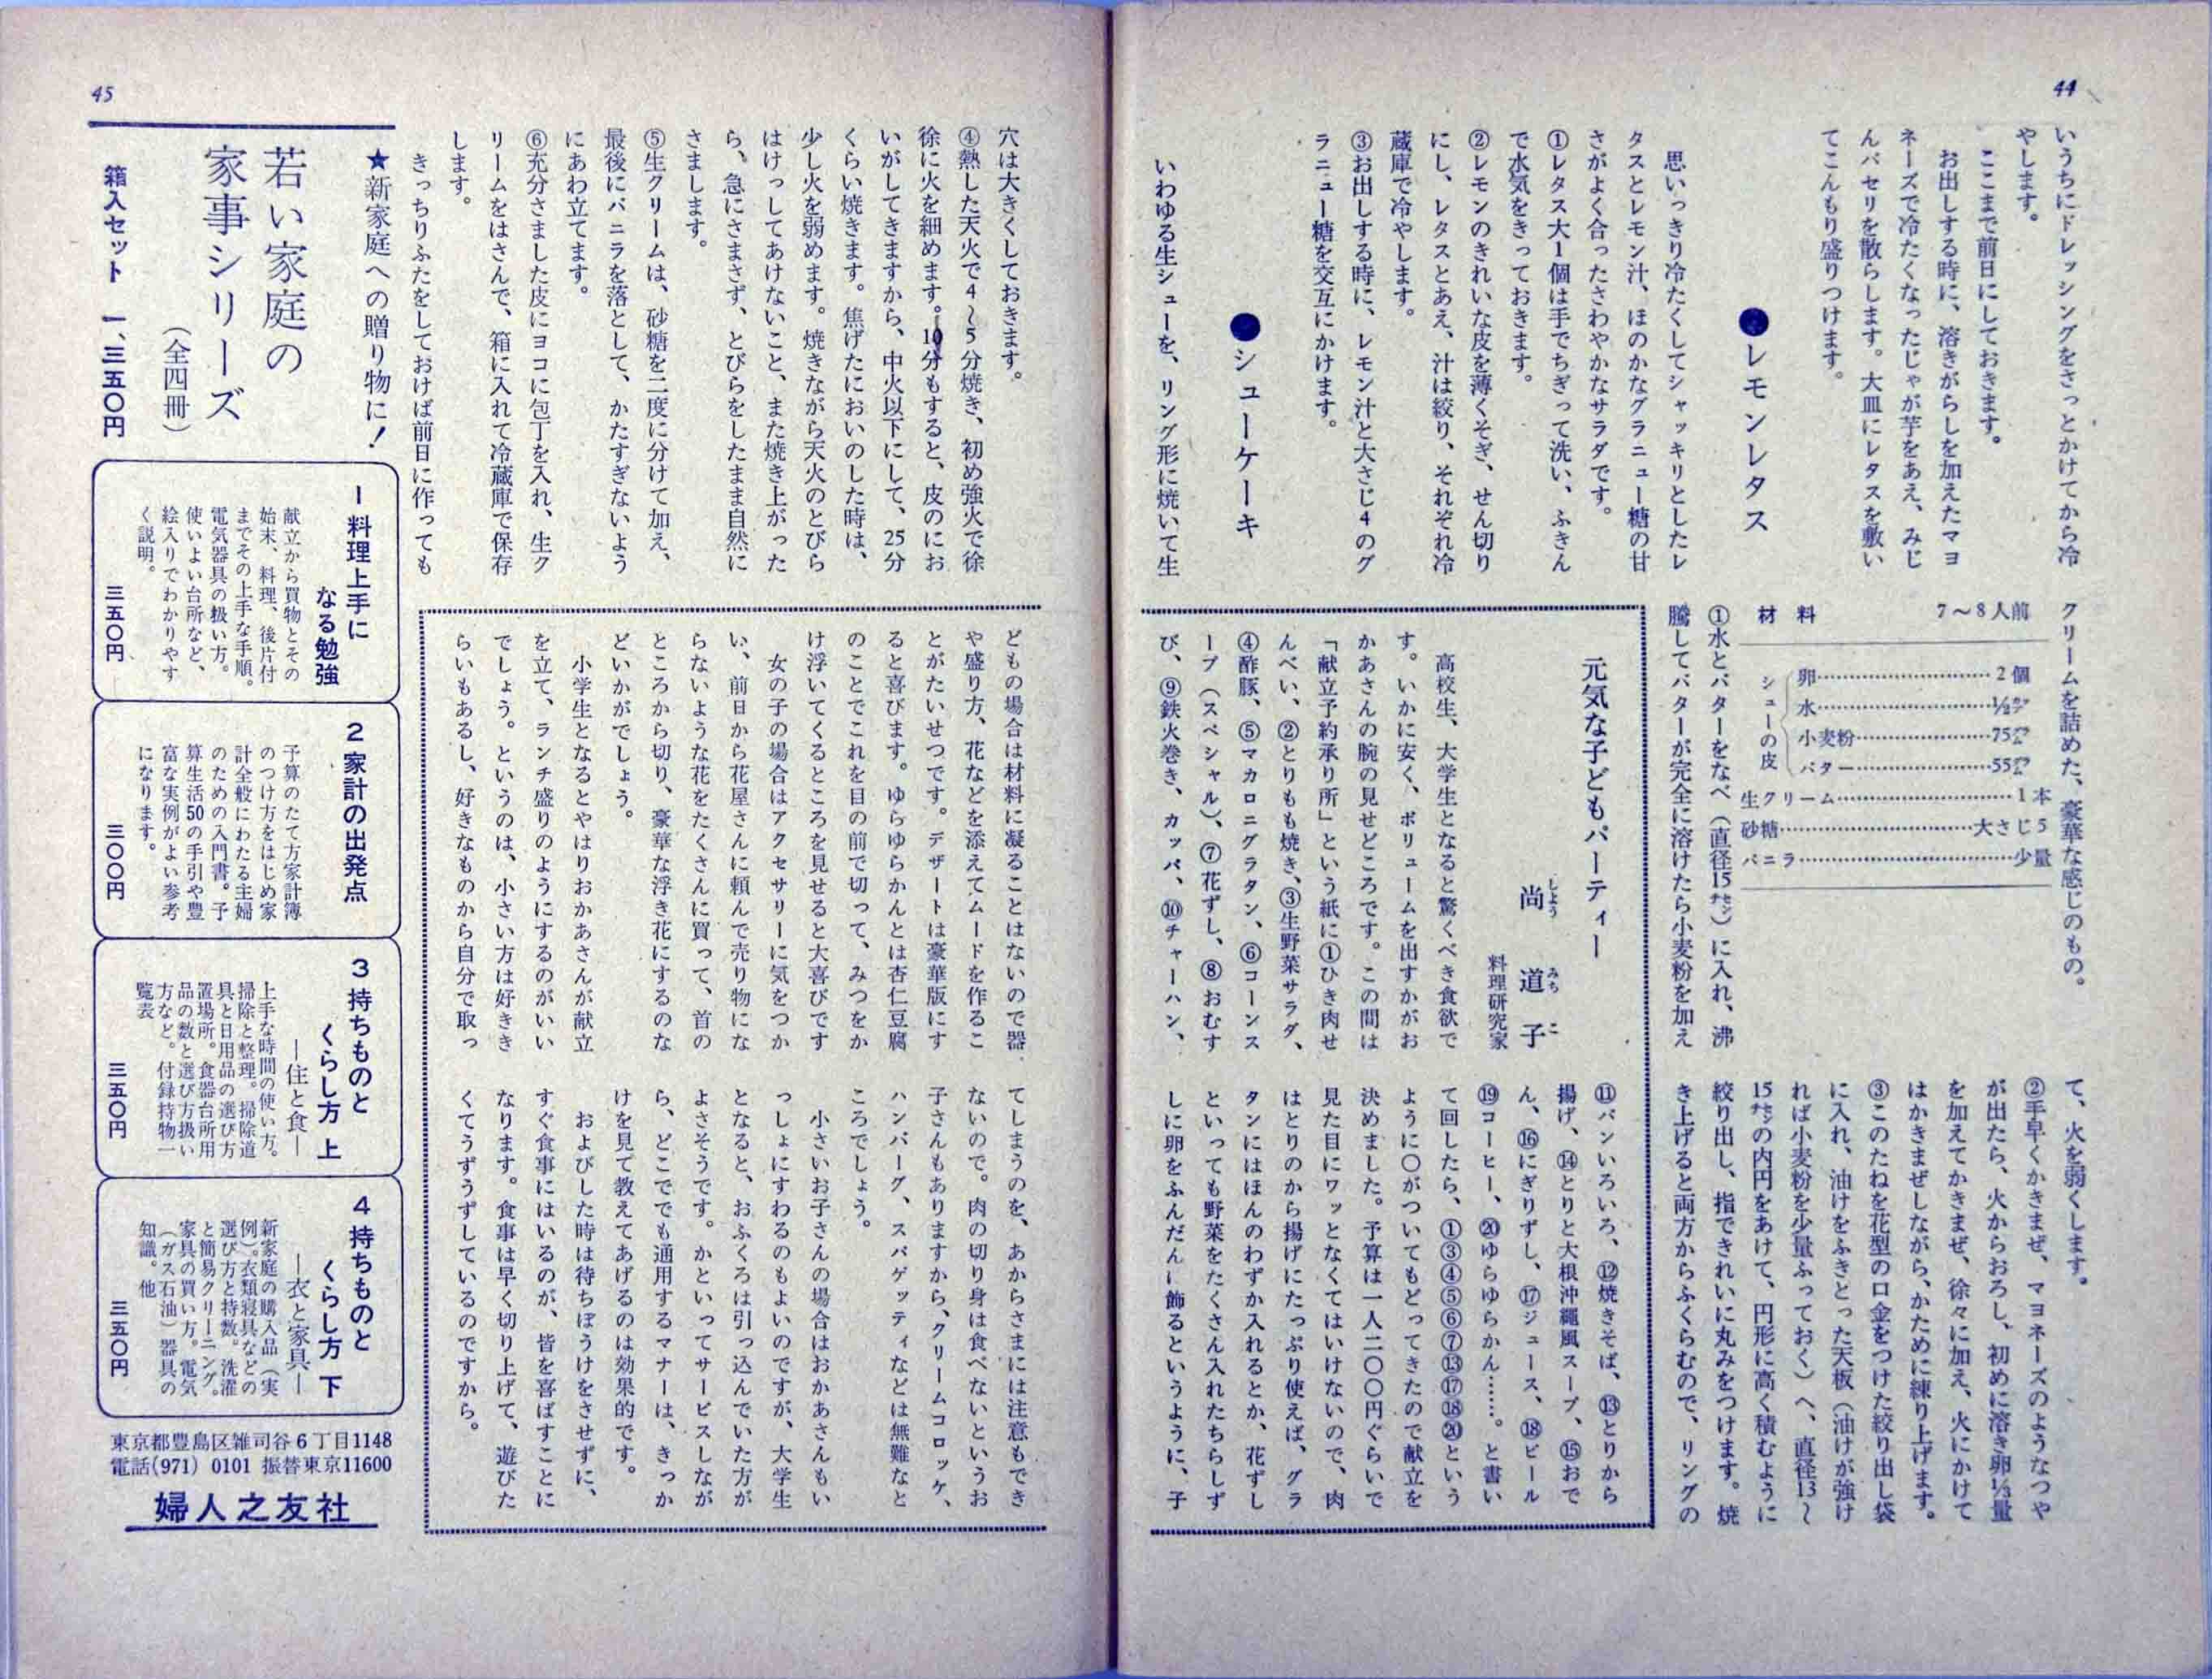 44
いうちにドレッシングをさっとかけてから冷
やします。
ここまで前日にしておきます。
お出しする時に、溶きがらしを加えたマヨ
ネーズで冷たくなったじゃが芋をあえ、みじ
んパセリを散らします。大皿にレタスを敷い
てこんもり盛りつけます。
●レモンレタス
思いっきり冷たくしてシャッキリとしたレ
タスとレモン汁、ほのかなグラニュー糖の甘
さがよく合ったさわやかなサラダです。
①レタス大1個は手でちぎって洗い、ふきん
で水気をきっておきます。
②レモンのきれいな皮を薄くそぎ、せん切り
にし、レタスとあえ、汁は絞り、それぞれ冷
蔵庫で冷やします。
③お出しする時に、レモン汁と大さじ4のグ
ラニュー糖を交互にかけます。
●シューケーキ
いわゆる生シューを、リング形に焼いて生
クリームを詰めた、豪華な感じのもの。
材料 7〜8人前
シューの皮
卵……2個
水……½カップ
小麦粉……75グラム
バター……55グラム
生クリーム……1本
砂糖……大さじ5
バニラ……少量
①水とバターをなべ（直径15センチ）に入れ、沸
騰してバターが完全に溶けたら小麦粉を加え
て、火を弱くします。
②手早くかきまぜ、マヨネーズのようなつや
が出たら、火からおろし、初めに溶き卵⅓量
を加えてかきまぜ、徐々に加え、火にかけて
はかきまぜしながら、かために練り上げます。
③このたねを花型の口金をつけた絞り出し袋
に入れ、油けをふきとった天板（油けが強け
れば小麦粉を少量ふっておく）へ、直径13〜
15センチの内円をあけて、円形に高く積むように
絞り出し、指できれいに丸みをつけます。焼
き上げると両方からふくらむので、リングの
穴は大きくしておきます。
④熱した天火で4〜5分焼き、初め強火で徐
徐に火を細めます。10分もすると、皮のにお
いがしてきますから、中火以下にして、25分
くらい焼きます。焦げたにおいのした時は、
少し火を弱めます。焼きながら天火のとびら
はけっしてあけないこと、また焼き上がった
ら、急にさまさず、とびらをしたまま自然に
さまします。
⑤生クリームは、砂糖を二度に分けて加え、
最後にバニラを落として、かたすぎないよう
にあわ立てます。
⑥充分さました皮にヨコに包丁を入れ、生ク
リームをはさんで、箱に入れて冷蔵庫で保存
します。
きっちりふたをしておけば前日に作っても
元気な子どもパーティー
尚道子
しょう みち こ
料理研究家
高校生、大学生となると驚くべき食欲で
す。いかに安く、ボリュームを出すかがお
かあさんの腕の見せどころです。この間は
「献立予約承り所」という紙に①ひき肉せ
んべい、②とりもも焼き、③生野菜サラダ、
④酢豚、⑤マカロニグラタン、⑥コーンス
ープ（スペシャル）、⑦花ずし、⑧おむす
び、⑨鉄火巻き、カッパ、⑩チャーハン、
⑪パンいろいろ、⑫焼きそば、⑬とりから
揚げ、⑭とりと大根沖縄風スープ、⑮おで
ん、⑯にぎりずし、⑰ジュース、⑱ビール
⑲コーヒー、⑳ゆらゆらかん……。と書い
て回したら、①③④⑤⑥⑦⑬⑰⑱⑳という
ように〇がついてもどってきたので献立を
決めました。予算は一人二〇〇円ぐらいで
見た目にワッとなくてはいけないので、肉
はとりのから揚げにたっぷり使えば、グラ
タンにはほんのわずか入れるとか、花ずし
といっても野菜をたくさん入れたちらしず
しに卵をふんだんに飾るというように、子
どもの場合は材料に凝ることはないので器
や盛り方、花などを添えてムードを作るこ
とがたいせつです。デザートは豪華版にす
ると喜びます。ゆらゆらかんとは杏仁豆腐
のことでこれを目の前で切って、みつをか
け浮いてくるところを見せると大喜びです
女の子の場合はアクセサリーに気をつか
い、前日から花屋さんに頼んで売り物にな
らないような花をたくさんに買って、首の
ところから切り、豪華な浮き花にするのな
どいかがでしょう。
小学生となるとやはりおかあさんが献立
を立て、ランチ盛りのようにするのがいい
でしょう。というのは、小さい方は好きき
らいもあるし、好きなものから自分で取っ
てしまうのを、あからさまには注意もでき
ないので。肉の切り身は食べないというお
子さんもありますから、クリームコロッケ、
ハンバーグ、スパゲッティなどは無難なと
ころでしょう。
小さいお子さんの場合はおかあさんもい
っしょにすわるのもよいのですが、大学生
となると、おふくろは引っ込んでいた方が
よさそうです。かといってサービスしなが
ら、どこででも通用するマナーは、きっか
けを見て教えてあげるのは効果的です。
およびした時は待ちぼうけをさせずに、
すぐ食事にはいるのが、皆を喜ばすことに
なります。食事は早く切り上げて、遊びた
くてうずうずしているのですから。
45
★新家庭への贈り物に！
若い家庭の
家事シリーズ
（全四冊）
箱入セット 一、三五〇円
1 料理上手に
なる勉強
献立から買物とその
始末、料理、後片付
までその上手な手順。
電気器具の扱い方。
使いよい台所など、
絵入りでわかりやす
く説明。
三五〇円
2 家計の出発点
予算のたて方家計簿
のつけ方をはじめ家
計全般にわたる主婦
のための入門書。予
算生活50の手引や豊
富な実例がよい参考
になります。
三〇〇円
3 持ちものと
くらし方 上
―住と食―
上手な時間の使い方。
掃除と整理。掃除道
具と日用品の選び方
置場所。食器台所用
品の数と選び方扱い
方など。付録持物一
覧表
三五〇円
4 持ちものと
くらし方 下
―衣と家具―
新家庭の購入品（実
例）。衣類寝具などの
選び方と持数。洗濯
と簡易クリーニング。
家具の買い方。電気
（ガス石油）器具の
知識。他
三五〇円
東京都豊島区雑司谷6丁目1148
電話(971) 0101 振替東京11600
婦人之友社